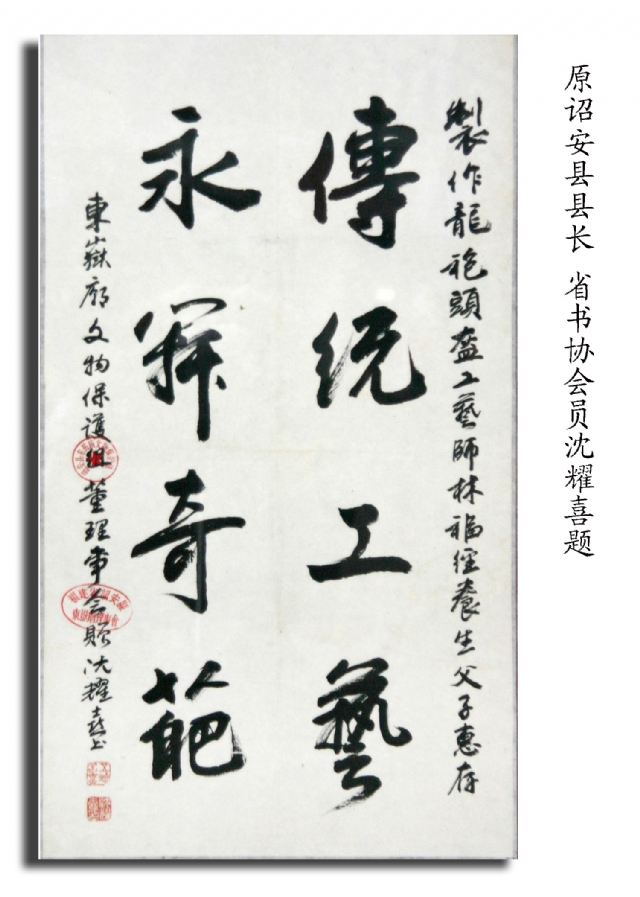 原诏安县县长 省书协会员沈耀喜题
製作龍袍頭盔工藝師林福經養生父子惠存
傳統工藝
永開奇葩
東嶽廟文物保護組董理事會贈沈耀喜